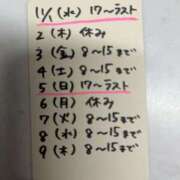 11/1(水) 17〜ラスト
2(木) 休み
3(金) 8〜15まで
4(土) 8〜15まで
5(日) 17〜ラスト
6(月) 休み
7(火) 8〜15まで
8(水) 8〜15まで
9(木) 8〜15まで